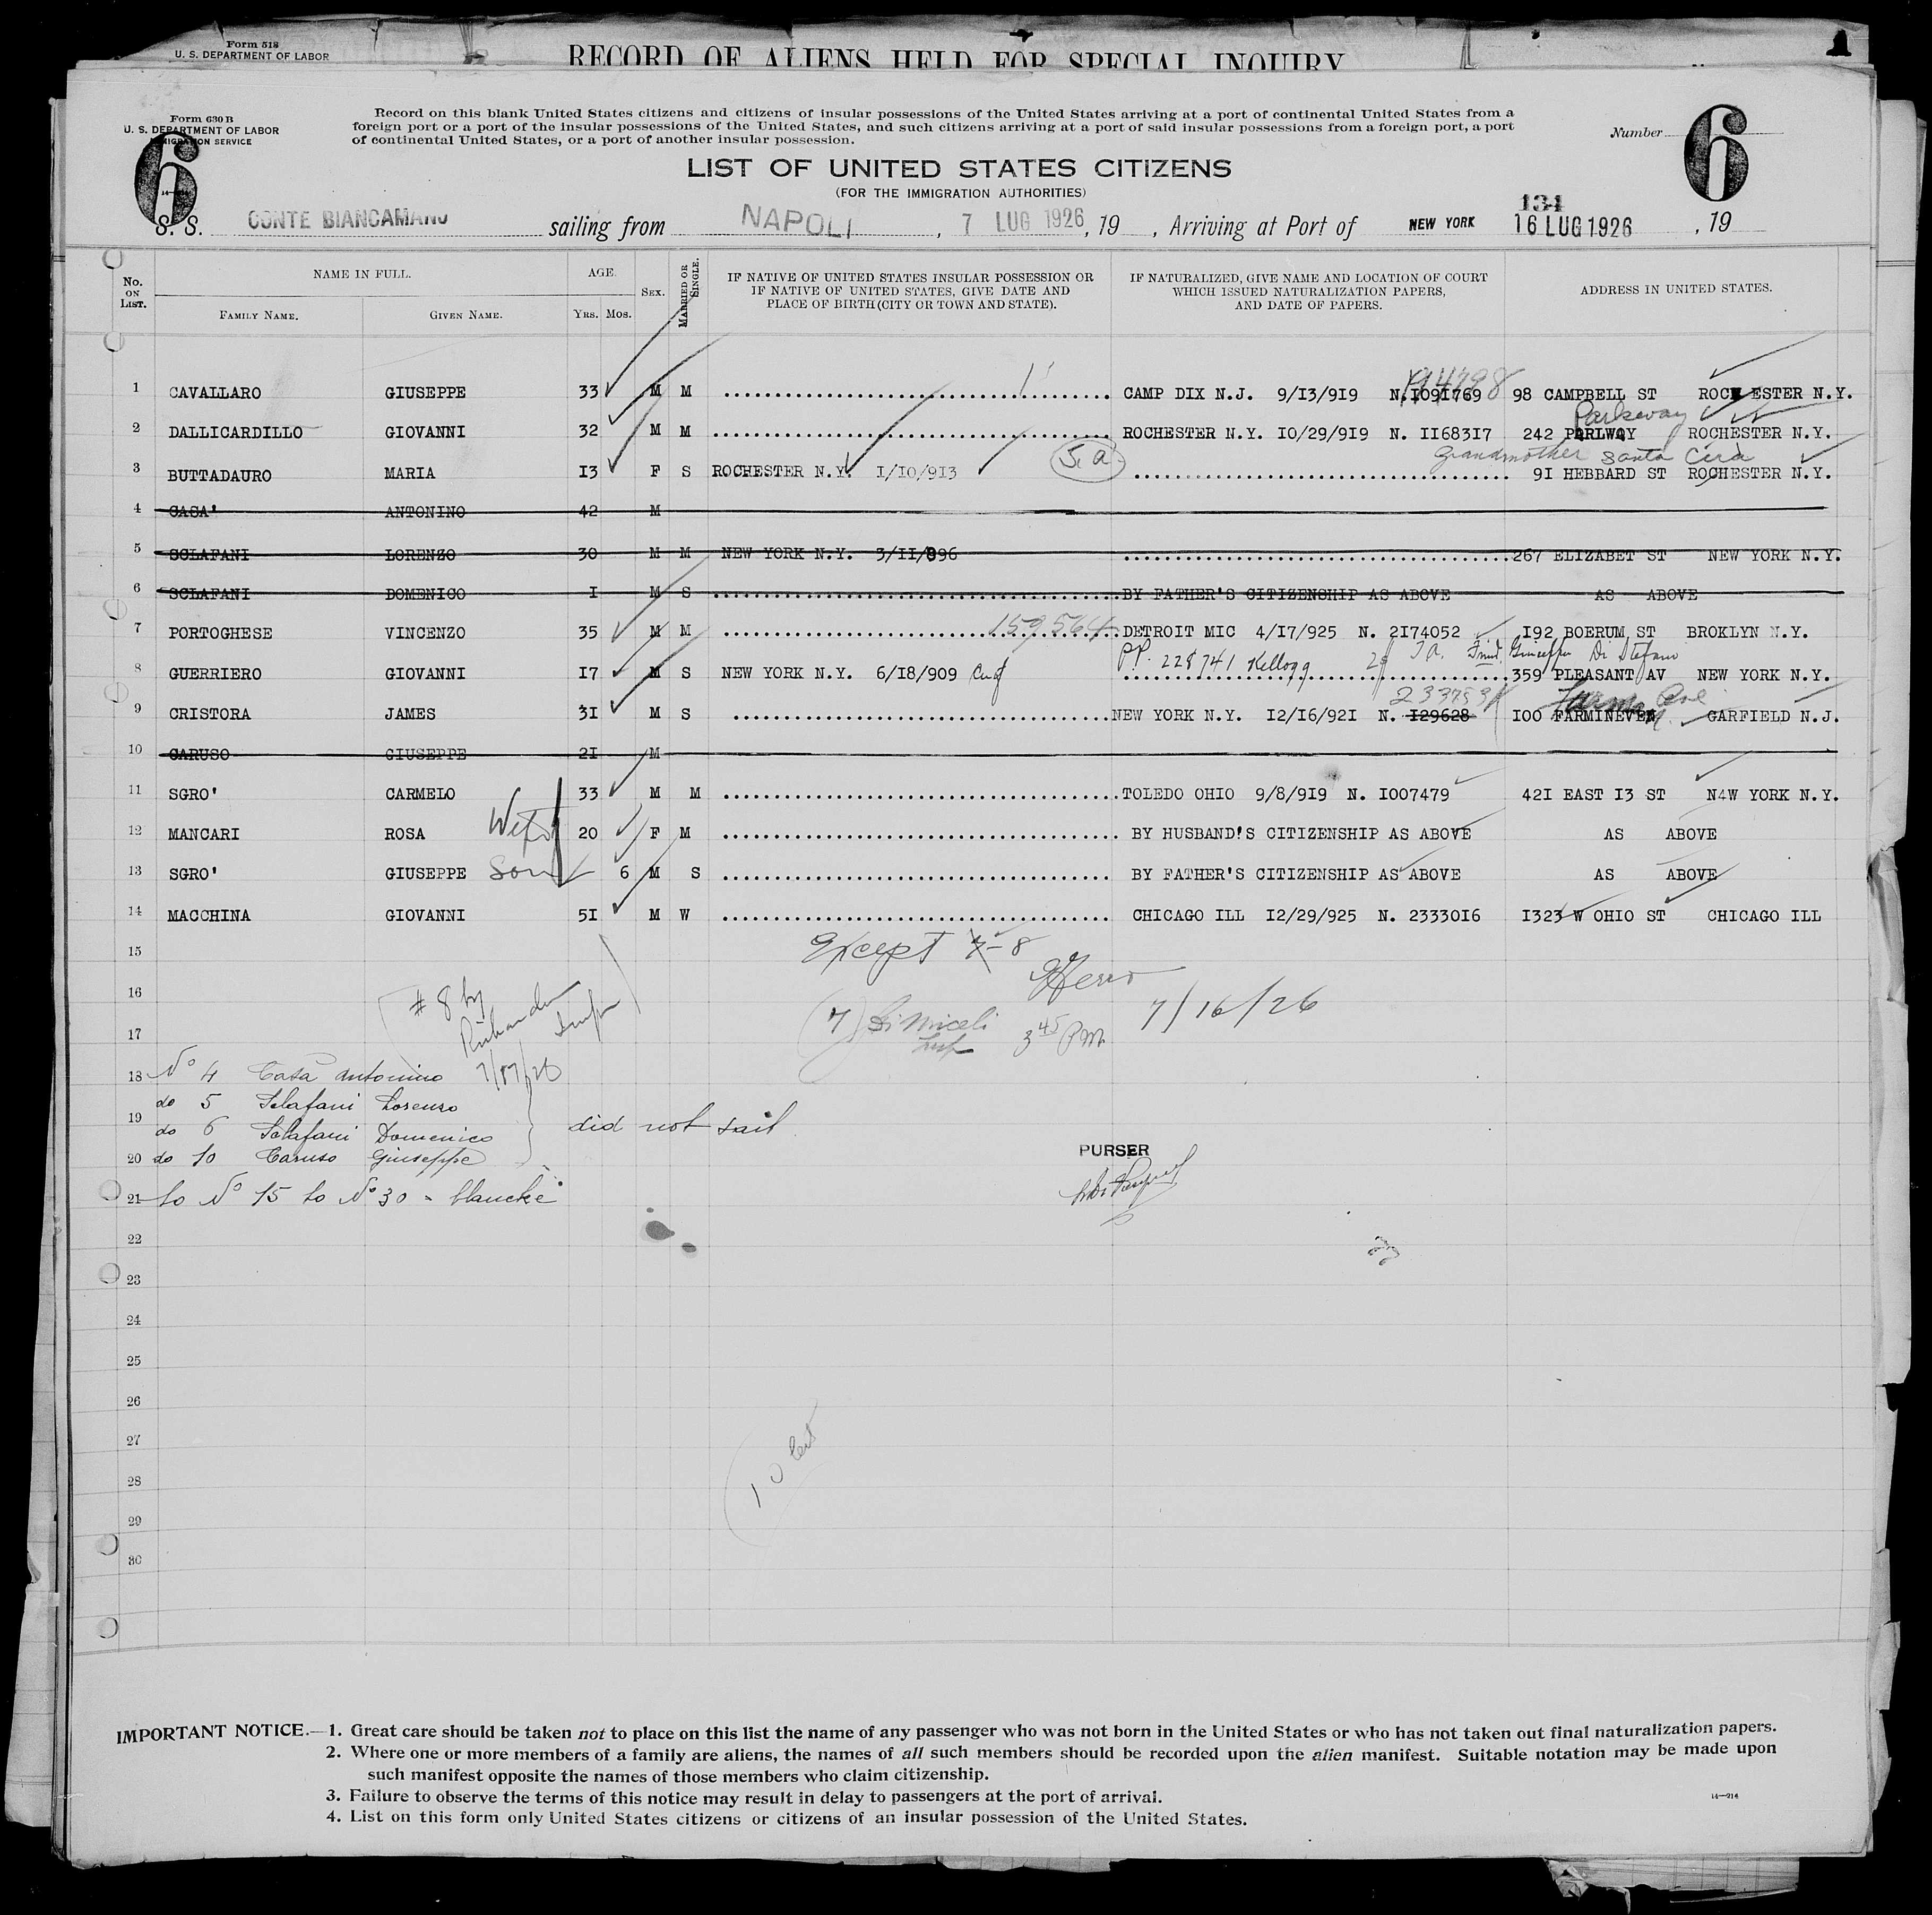 Form 518
U. S. DEPARTMENT OF LABOR
RECORD OF ALIENS HELD FOR SPECIAL INQUIRY
1
Form 630 B
U. S. DEPARTMENT OF LABOR
IMMIGRATION SERVICE
6
Record on this blank United States citizens and citizens of insular possessions of the United States arriving at a port of continental United States from a
foreign port or a port of the insular possessions of the United States, and such citizens arriving at a port of said insular possessions from a foreign port, a port
of continental United States, or a port of another insular possession.
Number 6
LIST OF UNITED STATES CITIZENS
(FOR THE IMMIGRATION AUTHORITIES)
134
S. S. CONTE BIANCAMANO sailing from NAPOLI, 7 LUG 1926, 19 , Arriving at Port of NEW YORK 16 LUG 1926, 19
No. ON LIST. NAME IN FULL. AGE. SEX. MARRIED OR SINGLE. IF NATIVE OF UNITED STATES INSULAR POSSESSION OR IF NATIVE OF UNITED STATES, GIVE DATE AND PLACE OF BIRTH (CITY OR TOWN AND STATE). IF NATURALIZED, GIVE NAME AND LOCATION OF COURT WHICH ISSUED NATURALIZATION PAPERS, AND DATE OF PAPERS. ADDRESS IN UNITED STATES.
FAMILY NAME. GIVEN NAME. YRS. MOS.
1 CAVALLARO GIUSEPPE 33 M M CAMP DIX N.J. 9/13/919 N.1091769 98 CAMPBELL ST ROCHESTER N.Y.
Parkway
2 DALLICARDILLO GIOVANNI 32 M M ROCHESTER N.Y. 10/29/919 N. 1168317 242 PARLWAY ROCHESTER N.Y.
Grandmother Santa Cira
3 BUTTADAURO MARIA 13 F S ROCHESTER N.Y. 1/10/913 91 HEBBARD ST ROCHESTER N.Y.
4 CASA' ANTONINO 42 M
5 SCLAFANI LORENZO 30 M M NEW YORK N.Y. 3/11/896 267 ELIZABET ST NEW YORK N.Y.
6 SCLAFANI DOMENICO 1 M S BY FATHER'S CITIZENSHIP AS ABOVE AS ABOVE
7 PORTOGHESE VINCENZO 35 M M 159564 DETROIT MIC 4/17/925 N. 2174052 192 BOERUM ST BROKLYN N.Y.
PP. 228741 Kellogg Giuseppe Di Stefano
8 GUERRIERO GIOVANNI 17 M S NEW YORK N.Y. 6/18/909 359 PLEASANT AV NEW YORK N.Y.
9 CRISTORA JAMES 31 M S NEW YORK N.Y. 12/16/921 N. 129628 100 FARMINEVEN GARFIELD N.J.
10 CARUSO GIUSEPPE 21 M
11 SGRO' CARMELO 33 M M TOLEDO OHIO 9/8/919 N. 1007479 421 EAST 13 ST N4W YORK N.Y.
12 MANCARI ROSA Wife 20 F M BY HUSBAND'S CITIZENSHIP AS ABOVE AS ABOVE
13 SGRO' GIUSEPPE Son 6 M S BY FATHER'S CITIZENSHIP AS ABOVE AS ABOVE
14 MACCHINA GIOVANNI 51 M W CHICAGO ILL 12/29/925 N. 2333016 1323 W OHIO ST CHICAGO ILL
15 Except 7-8
16 # 8 by
17 (7) Di Miceli 3 45 PM 7/16/26
18 No 4 Casa Antonino
do 5 Sclafani Lorenzo
19 do 6 Sclafani Domenico did not sail
20 do 10 Caruso Giuseppe
PURSER
21 to No 15 to No 30 - blancke
22
23
24
25
26
27
28
29
30
IMPORTANT NOTICE.—1. Great care should be taken not to place on this list the name of any passenger who was not born in the United States or who has not taken out final naturalization papers.
2. Where one or more members of a family are aliens, the names of all such members should be recorded upon the alien manifest. Suitable notation may be made upon
such manifest opposite the names of those members who claim citizenship.
3. Failure to observe the terms of this notice may result in delay to passengers at the port of arrival.
4. List on this form only United States citizens or citizens of an insular possession of the United States.
14—214